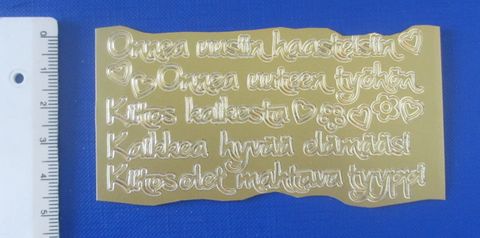 Onnea uusiin haasteisiin
Onnea uuteen työhön
Kiitos kaikesta
Kaikkea hyvää elämääsi
Kiitos olet mahtava tyyppi
0
1
2
3
4
5